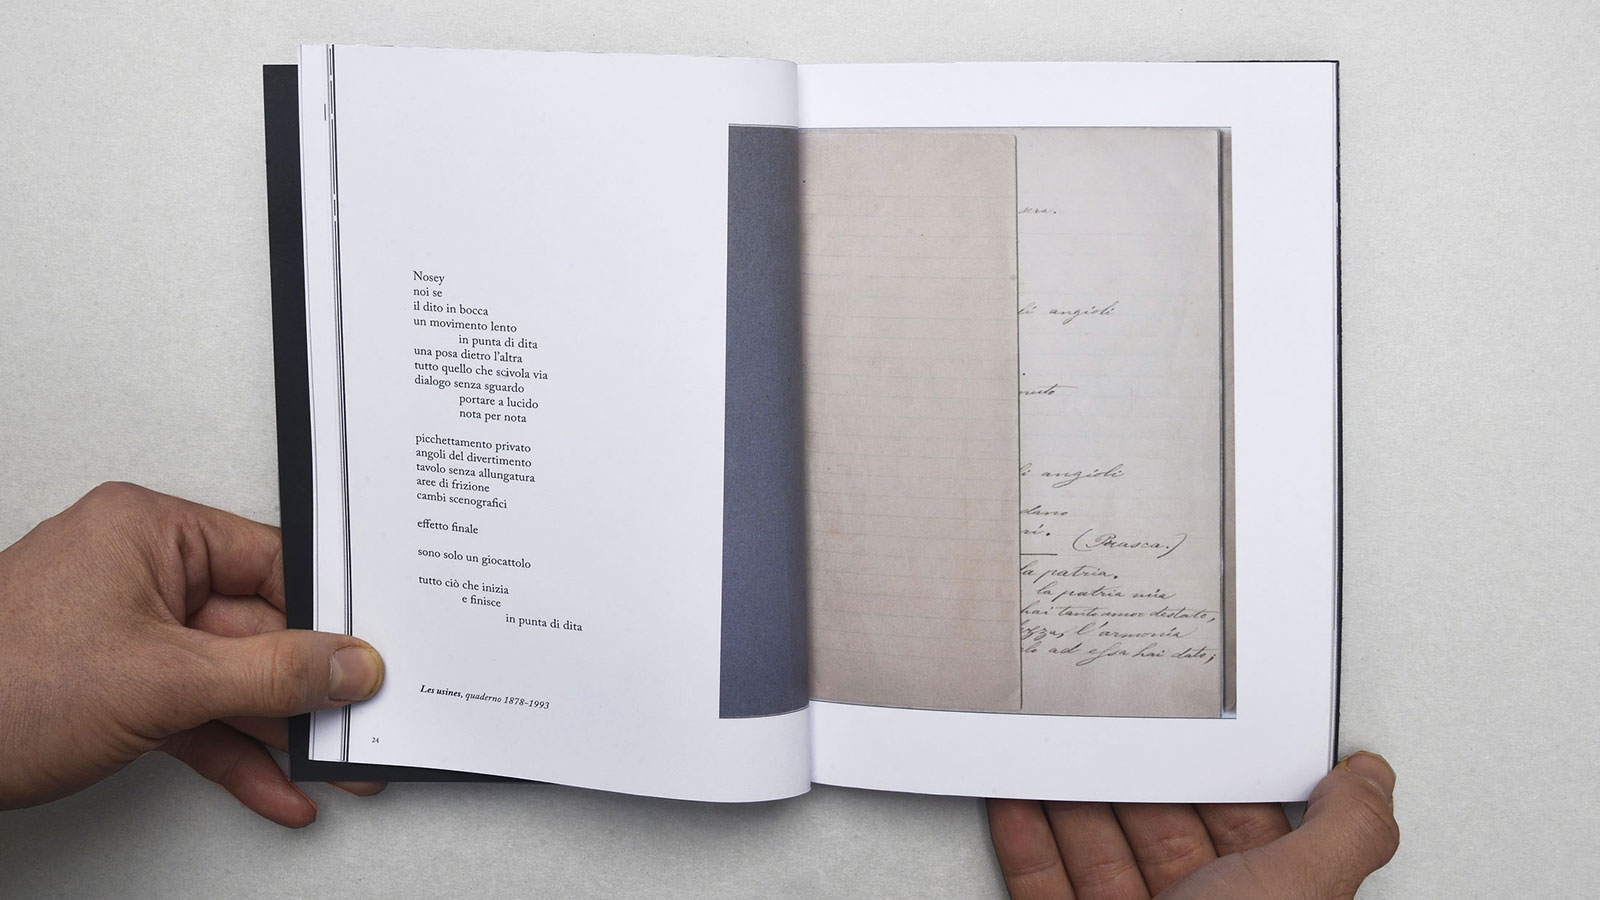 Nosey
noi se
il dito in bocca
un movimento lento
in punta di dita
una posa dietro l'altra
tutto quello che scivola via
dialogo senza sguardo
portare a lucido
nota per nota
picchettamento privato
angoli del divertimento
tavolo senza allungatura
aree di frizione
cambi scenografici
effetto finale
sono solo un giocattolo
tutto ciò che inizia
e finisce
in punta di dita
Les usines, quaderno 1878–1993
24
li angioli
li angioli
la patria.
la patria mia
hai tanto amor destato,
l'armonia
ad essa hai dato;